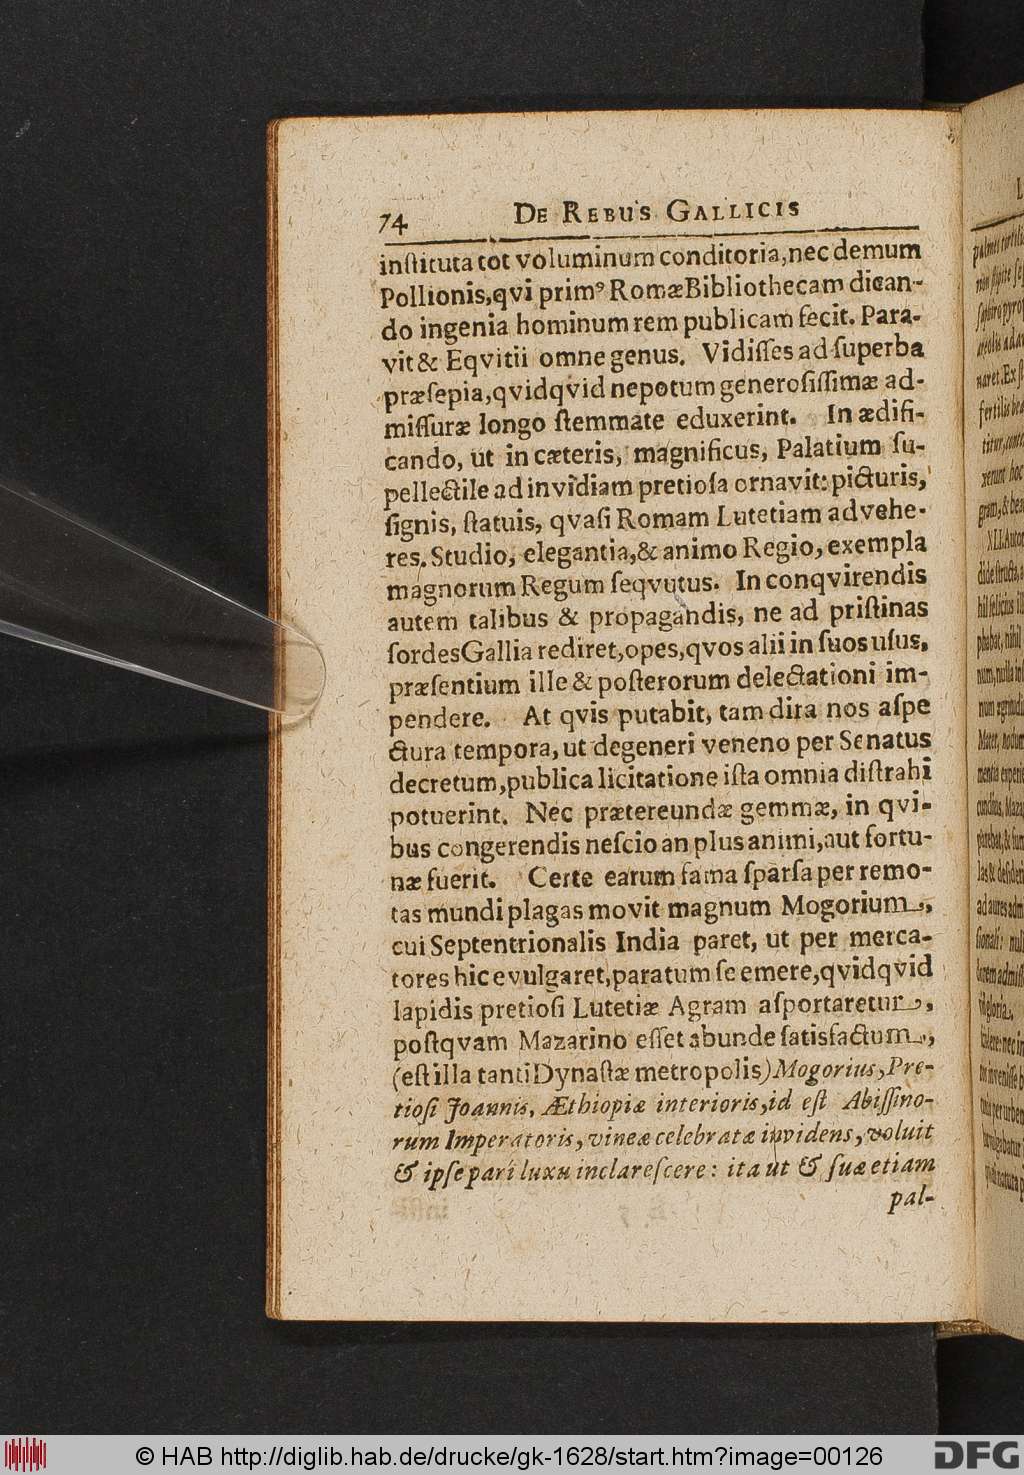 74 DE REBUS GALLICIS
inſtituta tot voluminum conditoria, nec demum
Pollionis, qvi primꝰ Romæ Bibliothecam dican-
do ingenia hominum rem publicam fecit. Para-
vit & Eqvitii omne genus. Vidiſſes ad ſuperba
præſepia, qvidqvid nepotum generoſiſſimæ ad-
miſſuræ longo ſtemmate eduxerint. In ædifi-
cando, ut in cæteris, magnificus, Palatium ſu-
pellectile ad invidiam pretioſa ornavit: picturis,
ſignis, ſtatuis, qvaſi Romam Lutetiam advehe-
res. Studio, elegantia, & animo Regio, exempla
magnorum Regum ſeqvutus. In conqvirendis
autem talibus & propagandis, ne ad priſtinas
ſordes Gallia rediret, opes, qvos alii in ſuos uſus,
præſentium ille & poſterorum delectationi im-
pendere. At qvis putabit, tam dira nos aſpe
ctura tempora, ut degeneri veneno per Senatus
decretum, publica licitatione iſta omnia diſtrahi
potuerint. Nec prætereundæ gemmæ, in qvi-
bus congerendis neſcio an plus animi, aut fortu-
næ fuerit. Certe earum fama ſparſa per remo-
tas mundi plagas movit magnum Mogorium,
cui Septentrionalis India paret, ut per merca-
tores hic evulgaret, paratum ſe emere, qvidqvid
lapidis pretioſi Lutetiæ Agram aſportaretur,
poſtqvam Mazarino eſſet abunde ſatisfactum,
(eſt illa tanti Dynaſtæ metropolis) Mogorius, Pre-
tioſi Joannis, Æthiopiæ interioris, id eſt Abiſſino-
rum Imperatoris, vineæ celebratæ invidens, voluit
& ipſe pari luxu inclareſcere: ita ut & ſuæ etiam
pal-
© HAB http://diglib.hab.de/drucke/gk-1628/start.htm?image=00126
DFG